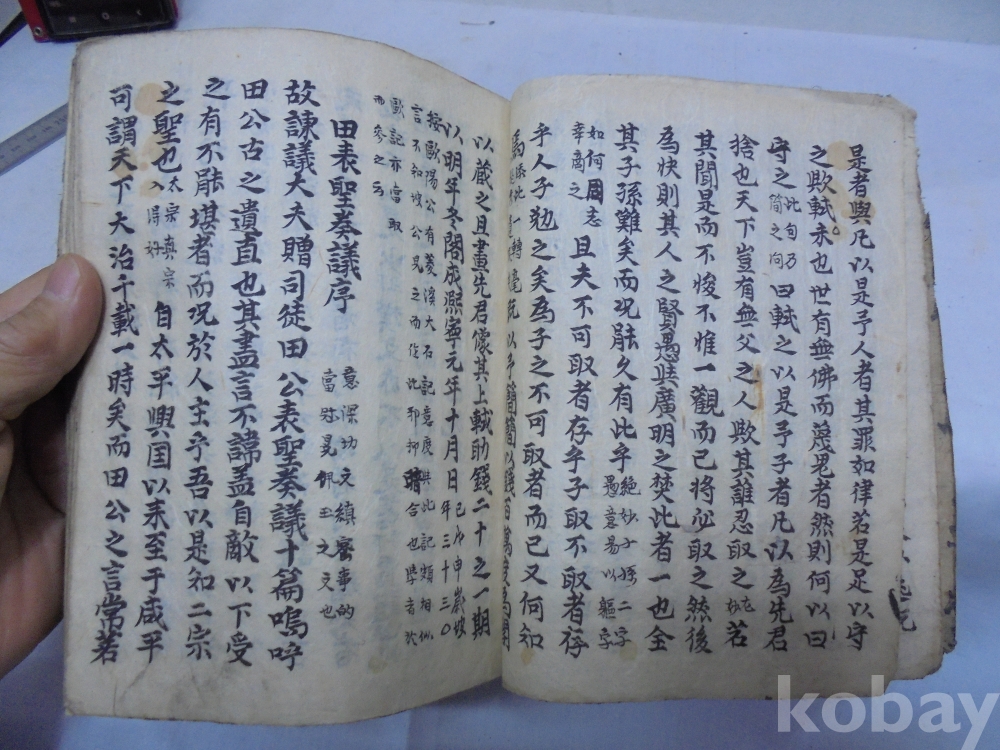 是者與凡以是予人者其罪如律若是足以守
之歟軾未也世有無佛而蔑老者然則何以曰
守之此句乃簡之向曰軾之以是予子者凡以為先君
捨也天下豈有無父之人歟其誰忍取之若
其聞是而不悛不惟一觀而已將必取之然後
為快則其人之賢愚與廣明之焚此者一也全
其子孫難矣而況能久有此乎絕妙子孫二字愚意易以軀字
如何周志幸商之且夫不可取者存乎子取不取者存
乎人子勉之矣為子之不可取者而已又何知
為一轉以予簡簡以錢百萬度為閣
以藏之且畫先君像其上軾助錢二十之一期
以明年冬閣成熙寧元年十月日
按歐陽公有菱溪大石記意度與此記頗相似
言不知坡公見之而作此邪抑暗合也學者於
歐記亦當取
而參之
田表聖奏議序
意深切文縝密事的
當冠冕佩玉之文也
故諫議大夫贈司徒田公表聖奏議十篇嗚呼
田公古之遺直也其盡言不諱蓋自敵以下受
之有不能堪者而況於人主乎吾以是知二宗
之聖也太宗真宗入得好自太平興国以來至于咸平
可謂天下大治千載一時矣而田公之言常若
kobay